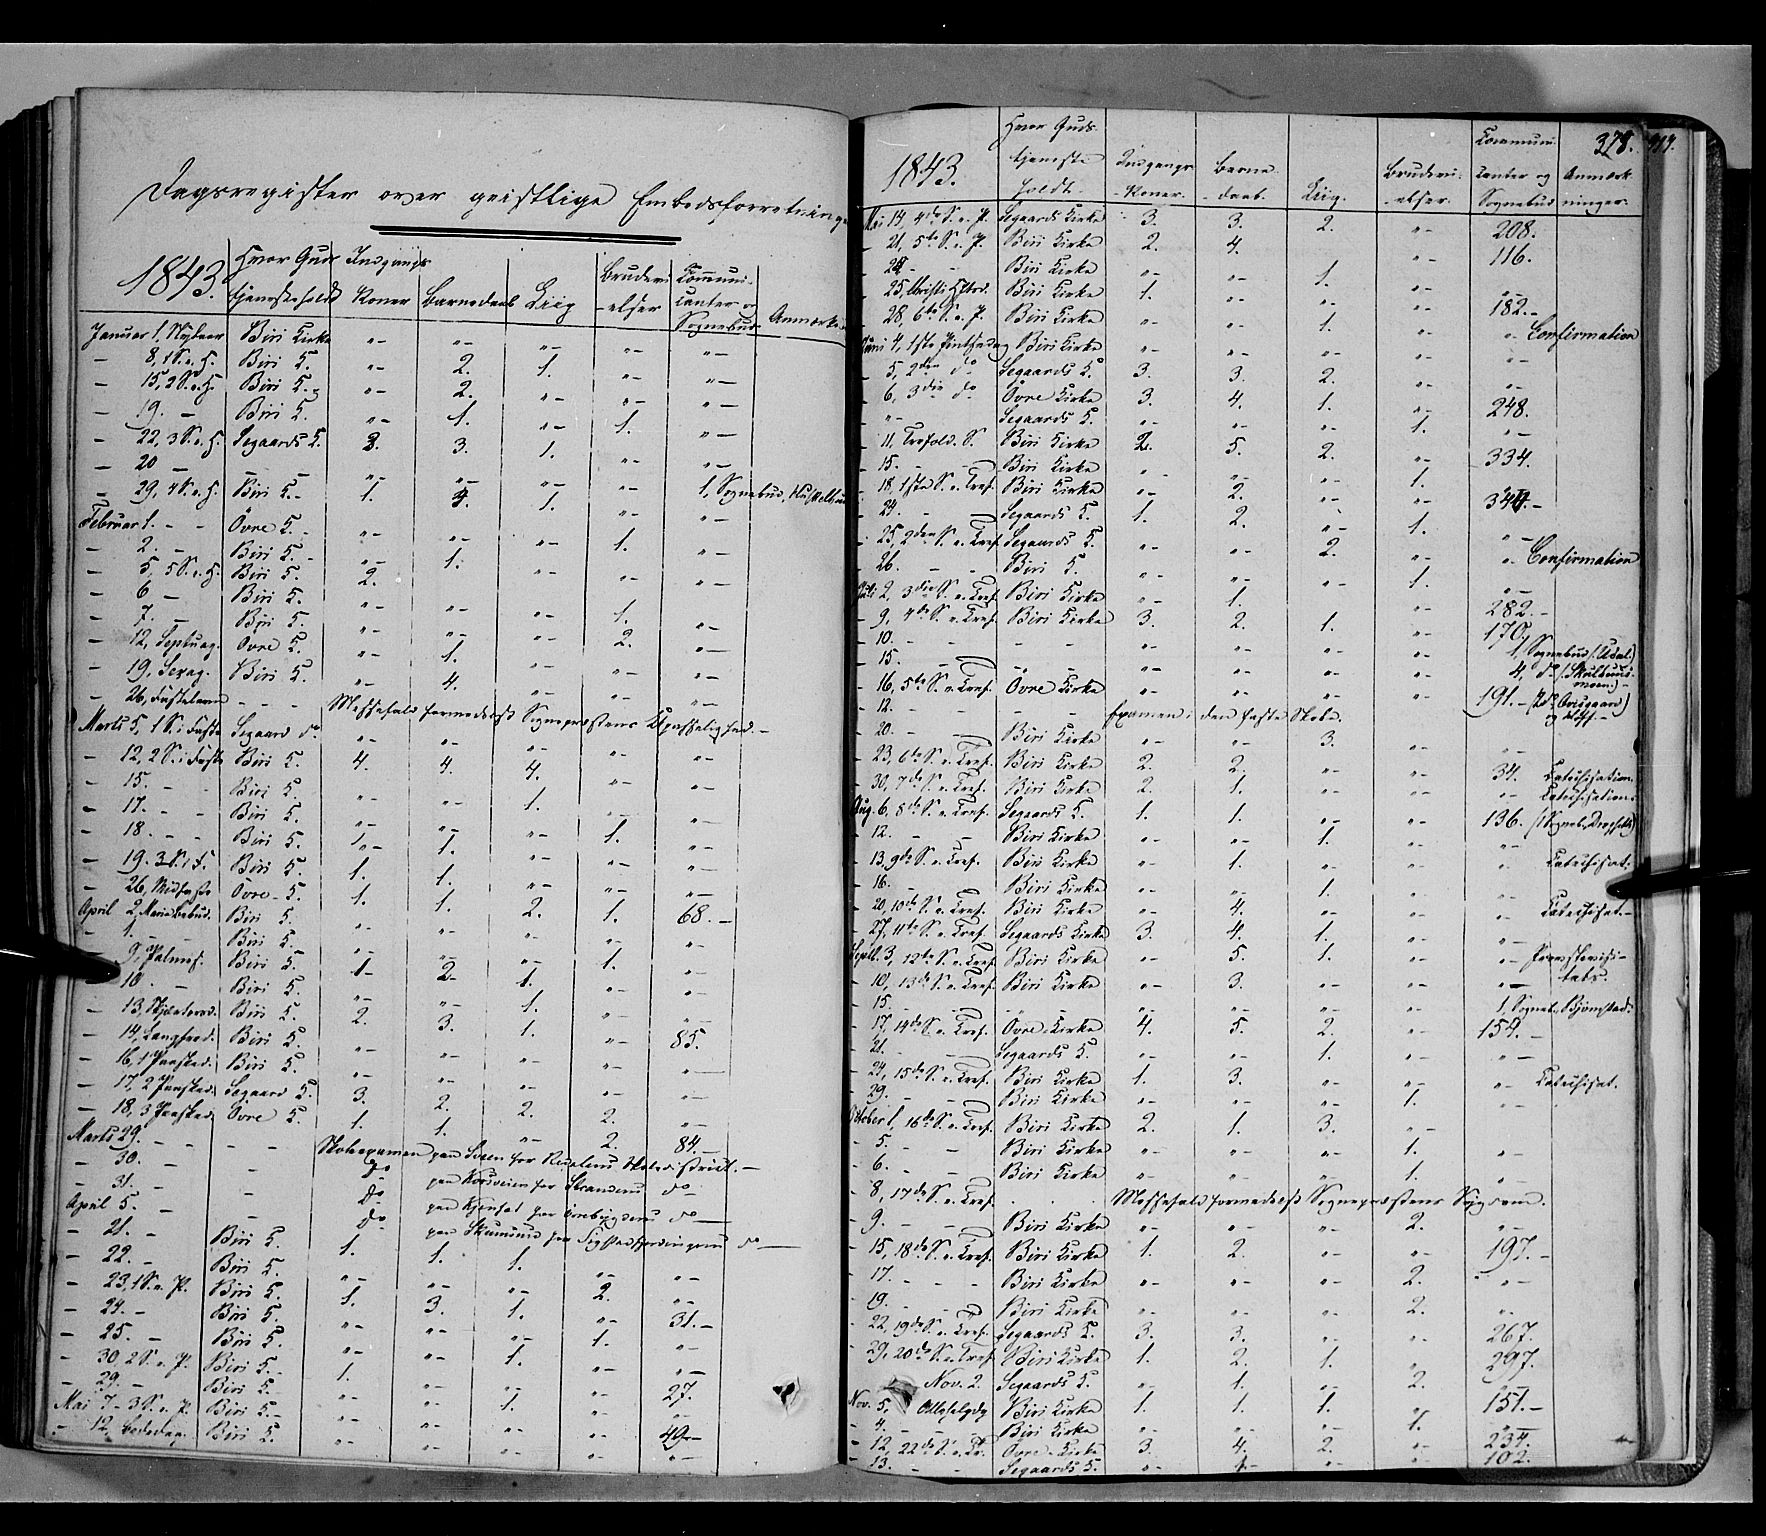 Dagsregister over geistlige Embedsforretninger
1843. Hvor Guds Indgangs Brudevi Communi
tjeneste holdt Koner Barnedaab Liig -elser canter og
Sognebud Anmærkn.
Januar 1, Nytaar Biri Kirke "- "- "- "- "-
- 8, 1 S. e. H. Biri K. "- 2. 1. "- "-
- 15, 2 S. e. H. Biri K. "- 2. "- "- "-
- 19. - Biri K. "- 1. "- 1. "-
- 22, 3 S. e. H. Segaards K. 3. 3. 1. "-
- 20 - - - "- "- "- "- 1, Sognebud,
- 29, 4 S. e. H. Biri K. 1. 4. 1. "- "-
Februar 1. - - Övre K. "- "- "- 1. "-
- 2. - Biri K. "- 1. "- "-
- 5, 5 S. e. H. Biri K. 2.
- 6 - Biri K. "- "- 1. "-
- 7. - Biri K. "- "- "- 2. "-
- 12, Septuag. Övre K. "- 1. "- "-
- 19, Sexag. Biri K. "- 4. "- "- "-
- 26, Fastelavn - - - Messefald formedelst Sognepræstens Upasselighed. -
Marts 5, 1 S. i Faste Segaard do "- "- "-
- 12, 2 S. i Faste Biri K. 4. 4. 4. "- "-
- 15. - - Biri K. "- "- 1. "-
- 17. - - Biri K. "- "- "- 1. "-
- 18. - - Biri K. 1. "- 1. "- "-
- 19. 3 S. i F. Biri K. 1. 1. "- "- "-
- 26, Midfaste Övre - K. 1. 1. 2. 1. 68. -
April 2, Mariæ Bebud. Biri K. "- "- "-
- 1. - Biri K. "- "- "- 1. "-
- 9, Palmes. Biri K. 1- 2. 1. "-
- 10. - Biri K. "- "- 1. "-
- 13, Skjærtorsd. Biri K. 2. 3. 1. "-
- 14, Langfred. Biri K. "- "- 85.
- 16, 1 Paasked. Biri K. "- "- "-
- 17, 2 Paasked. Segaard K. 3. 2. 2. "- "-
- 18, 3 Paasked. Övre K. 1. 1. "- 2. 84. -
Marts 29. - - - Skoleexamen paa Sveen for Skoledistrict. -
- 30. - do paa Korsveien for do
- 31. - - do paa for do
April 5. - - do paa for do
- 21. - Biri K. 1. 1. 1.
- 22. - Biri K. "- "- 2. "-
- 23, 1 S. e. P. Biri K. 1. 3. 1. 31. -
- 24. - Biri K. "- "- "- 1. "-
- 25. - Biri K. "- "- 1. "-
- 30, 2 S. e. P. Biri K. 1. "- 27.
- 29. - Biri K. "- "- 1. "-
Mai 7 - 3 S. e. P. Biri K. "- "- 49. -
- 12 Bededag Biri K. "- "- "-
378.
1843. Hvor Guds- tjeneste holdt. Indgangs -Koner. Barne -daab. Liig. Brudevi -elser. Communi canter og Sognebud Anmærk ninger.
Mai 14, 4de S. e. P. Segaards Kirke 3. 3. 2. "- 208.
- 21, 5te S. e. P. Biri Kirke 2. 4. "- 116.
- - - Biri Kirke "- "- 1. "-
- 25, Christi Hfard. Biri Kirke 1. "- "- 182. -
- 28, 6te S. e. P. Biri Kirke "- "- 1. "- "- Confirmation
Juni 4, 1ste Pintsedag Biri Kirke "- "- "- "- "-
- 5, 2den do Segaards K. 3. 3. 2. "- "-
- 6, 3die do Övre Kirke 3. 4. 1. "- 248.
"- Segaards K. "- "- "- 1. "-
- 11, Trefold. S. Biri Kirke 2. 5. 2. 334.
- 15. - - Biri Kirke "- "- "- 1. "-
- 18, 1ste S. e. Tref. Biri Kirke "- 2. "- "- 344. -
- 24. - Segaards K. 1. 2. "- 1. "-
- 25, 2den S. e. Tref. Segaards K. "- "- 2. "- "- Confirmation
- 26. - - Biri K. "- "- "- 1. "-
Juli 2, 3die S. e. Tref. Biri Kirke "- 1. "- "- 282. -
- 9, 4de S. e. Tref. Biri Kirke 3. 2. 1. "- 170.
- 10. - - - "- "- "- "- 1, Sognebud
- 15. - "- "- "- "- "- 4, do
- 16, 5te S. e. Tref. Övre Kirke "- "- "- "- 191. -
- 12. - - - Examen i den faste Skole.
- 20. - - Biri Kirke "- "- 3. "- "-
- 23, 6te S. e. Tref. Biri Kirke 2. 2. "- "- 34. Catechisation.
- 30, 7de S. e. Tref. Biri Kirke 2. 1. "- "- "- Catechisation.
Aug. 6, 8de S. e. Tref. Segaards K. 1. 1. "- "- 136.
- 12. - - Biri Kirke "- "- 1. "- "-
- 13, 9de S. e. Tref. Biri Kirke "- 1. "- "- "- Catechisat.
- 16. - Biri Kirke "- "- 1. "- "-
- 20, 10de S. e. Tref. Biri Kirke "- 4. "- "- "- Catechisat. -
- 27, 11te S. e. Tref. Segaards Kirke 3. 4. 1. "- "-
Septb. 3, 12te S. e. Tref. Biri Kirke "- 5. 1. "- "- Provstevisi-
- 10, 13de S. e. Tref. Biri Kirke "- 3. "- "- "- tats.
- 15. - - "- "- "- "- "- "- 1, Sogneb. Bjørnstad.
- 17, 14de S. e. Tref. Övre Kirke 4. 5. 2. "- 154. -
- 21. - - Segaards K. "- "- 1. "- "-
- 24, 15de S. e. Tref. Biri Kirke 1. 3. "- "- "- Catechisat.
- 29. - - Biri Kirke "- "- "- 1. "-
October 1, 16de S. e. Tref. Biri Kirke 2. 1. 3. "- "-
- 5. - - Biri Kirke "- "- "- 1. "-
- 6. - - Biri Kirke "- "- "- 1. "-
- 8, 17de S. e. Tref. Messefald formedelst Sognepræstens Sygdom.
- 9. - - Biri Kirke "- "- "- 2. "-
- 15, 18de S. e. Tref. Biri Kirke 1. 2. "- "- 197. -
- 17. - - - Biri Kirke "- "- "- 2. "-
- 19. - - Biri Kirke "- "- "- 2. "-
- 22, 19de S. e. Tref. Segaards K. 3. 3. "- "- 267.
- 29, 20de S. e. Tref. Biri Kirke 1. 2. 1. "- 297.
Nov. 2. Segaards K. "- 1. "- 2. "-
Nov. 5. Allehelgdg Biri Kirke 1. 1. 1. "- 151. -
- 4. Biri Kirke "- "- "- 1. "-
- 12, 22de S. e. Tr. Övre - Kirke 3. 4. 2. "- 234.
- 13. - - Segaards K. "- 1- "- "- 102.